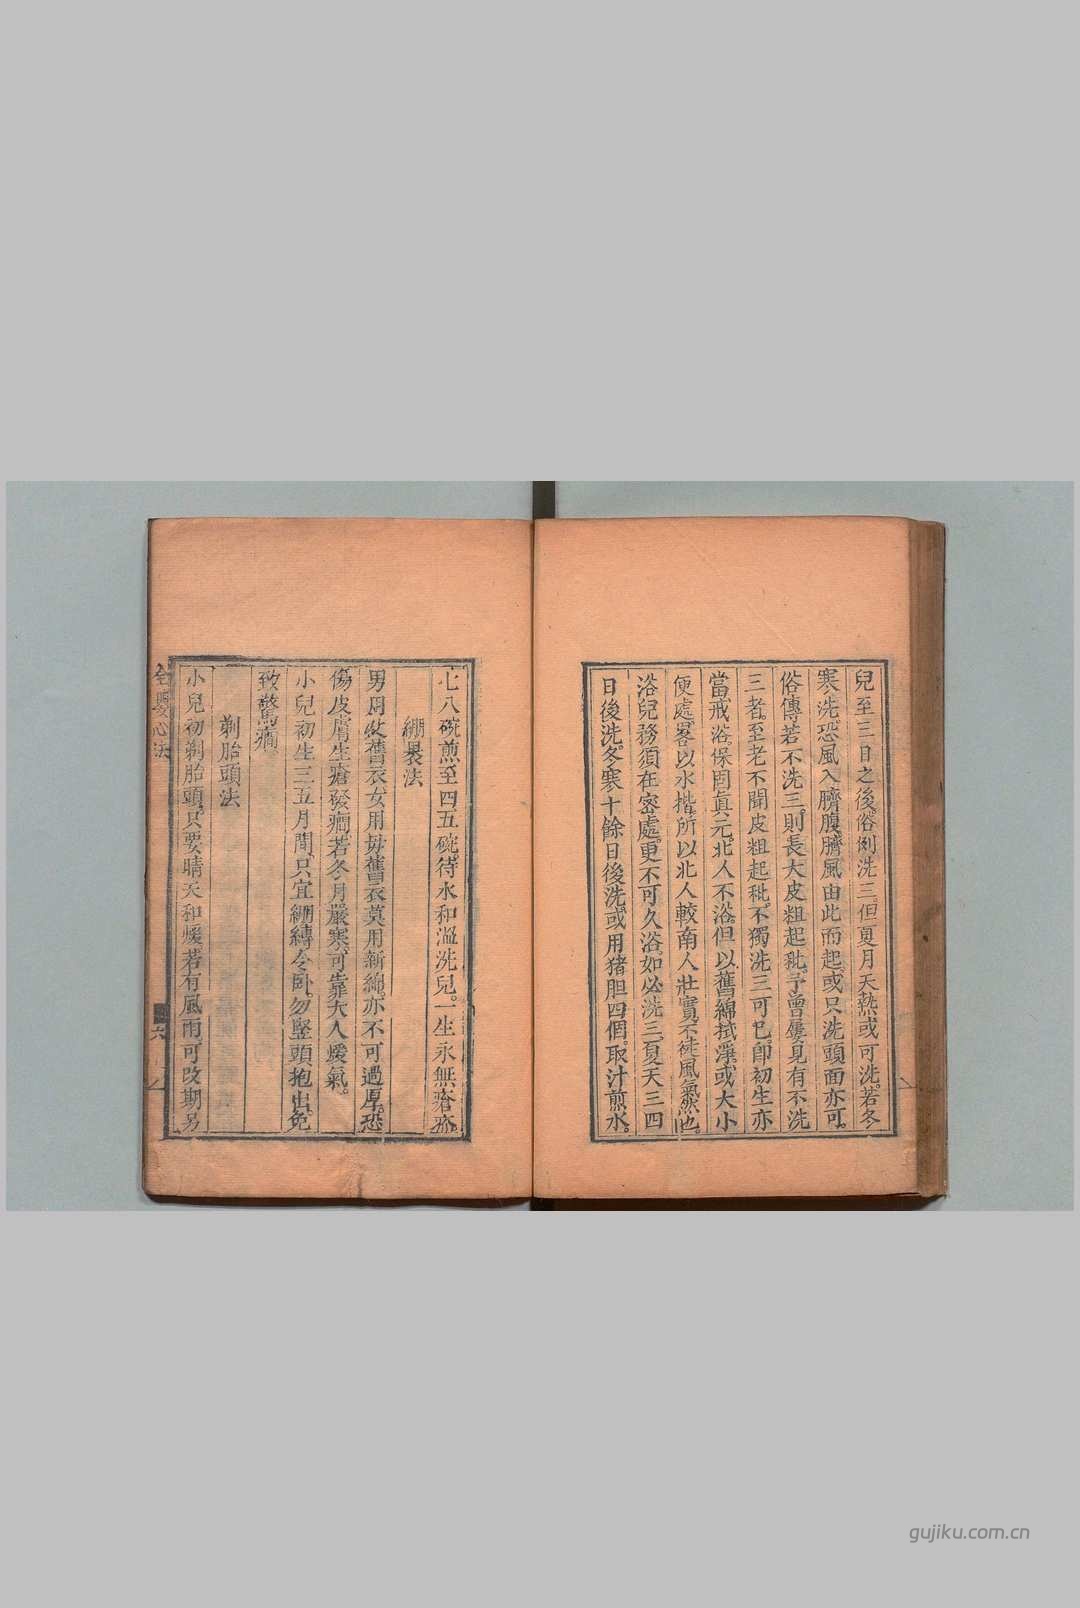 兒至三日之後。俗例洗三。但夏月天熱或可洗。若冬
寒洗恐風入臍腹。臍風由此而起。或只洗頭面亦可。
俗傳若不洗三。則長大皮粗起秕。予曾屢見有不洗
三者。至老不聞皮粗起秕。不獨洗三可已。即初生亦
當戒浴。保固眞元。北人不浴。但以舊綿拭淨。或大小
便處。畧以水揩。所以北人較南人壯實。不徒風氣然也。
浴兒務須在密處。更不可久浴。如必洗三。夏天三四
日後洗。冬寒十餘日後洗。或用猪胆四個。取汁煎水。
七八碗煎至四五碗。待水和溫洗兒。一生永無瘡疥
繃裹法
男用父舊衣。女用母舊衣。莫用新綿。亦不可過厚。恐
傷皮膚。生瘡發癇。若冬月嚴寒。可靠大人煖氣。
小兒初生三五月間。只宜繃縛令卧。勿竪頭抱出。免
致驚癇。
剃胎頭法
小兒初剃胎頭。只要晴天和煖。若有風雨。可改期另
全嬰心法
六
gujiku.com.cn